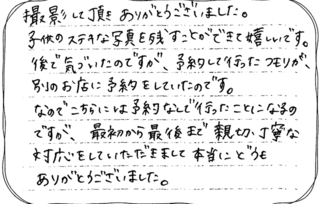 撮影して頂き ありがとうございました。
子供のステキな写真を残すことができて嬉しいです。
後で気づいたのですが、予約して行ったつもりが、
別のお店に予約をしていたのです。
なのでこちらには予約なしで行ったことになるの
ですが、最初から最後まで 親切、丁寧な
対応をしていただきまして 本当にどうも
ありがとうございました。